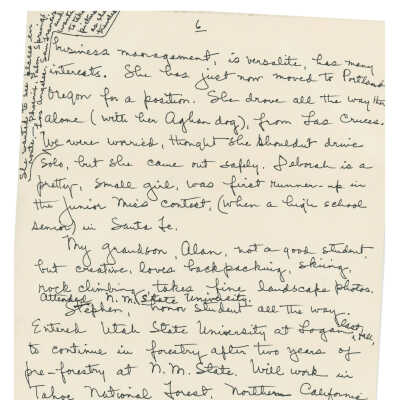 6
business management, is versalite, has many
interests. She has just now moved to Portland
Oregon for a position. She drove all the way
alone (with her Afghan dog), from Las Cruces.
We were worried, thought she shouldnt drive
solo, but she came out safely. Deborah is a
pretty, small girl, was first runner-up in
the Junior Miss contest, (when a high school
senior) in Santa Fe.
My grandson, Alan, not a good student,
but creative, loves backpacking, skiing,
rock climbing, takes fine landscape photos.
Attended N.M. State University.
Stephen, honor student all the way.
Entered Utah State University at Logan,
to continue in forestry after two years of
pre-forestry at N.M. State. Will work in
Tahoe National Forest, Northern California
She wanted to see places en
route - Phoenix, Palm Springs,
Los Angeles, San Francisco